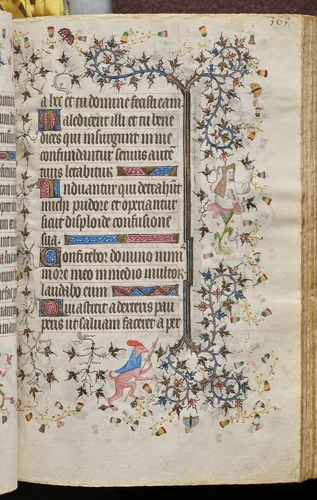 363
a hec et tu domine fecisti eam
Maledicent illi et tu bene
dices qui insurgunt in me
confundantur servus autem
tuus letabitur
Induantur qui detrahunt
michi pudore et operiantur
sicut diploide confusione
sua
Confitebor domino nimis
in ore meo in medio multorum
laudabo eum
Qui astitit a dextris pau
peris ut salvam faceret a per